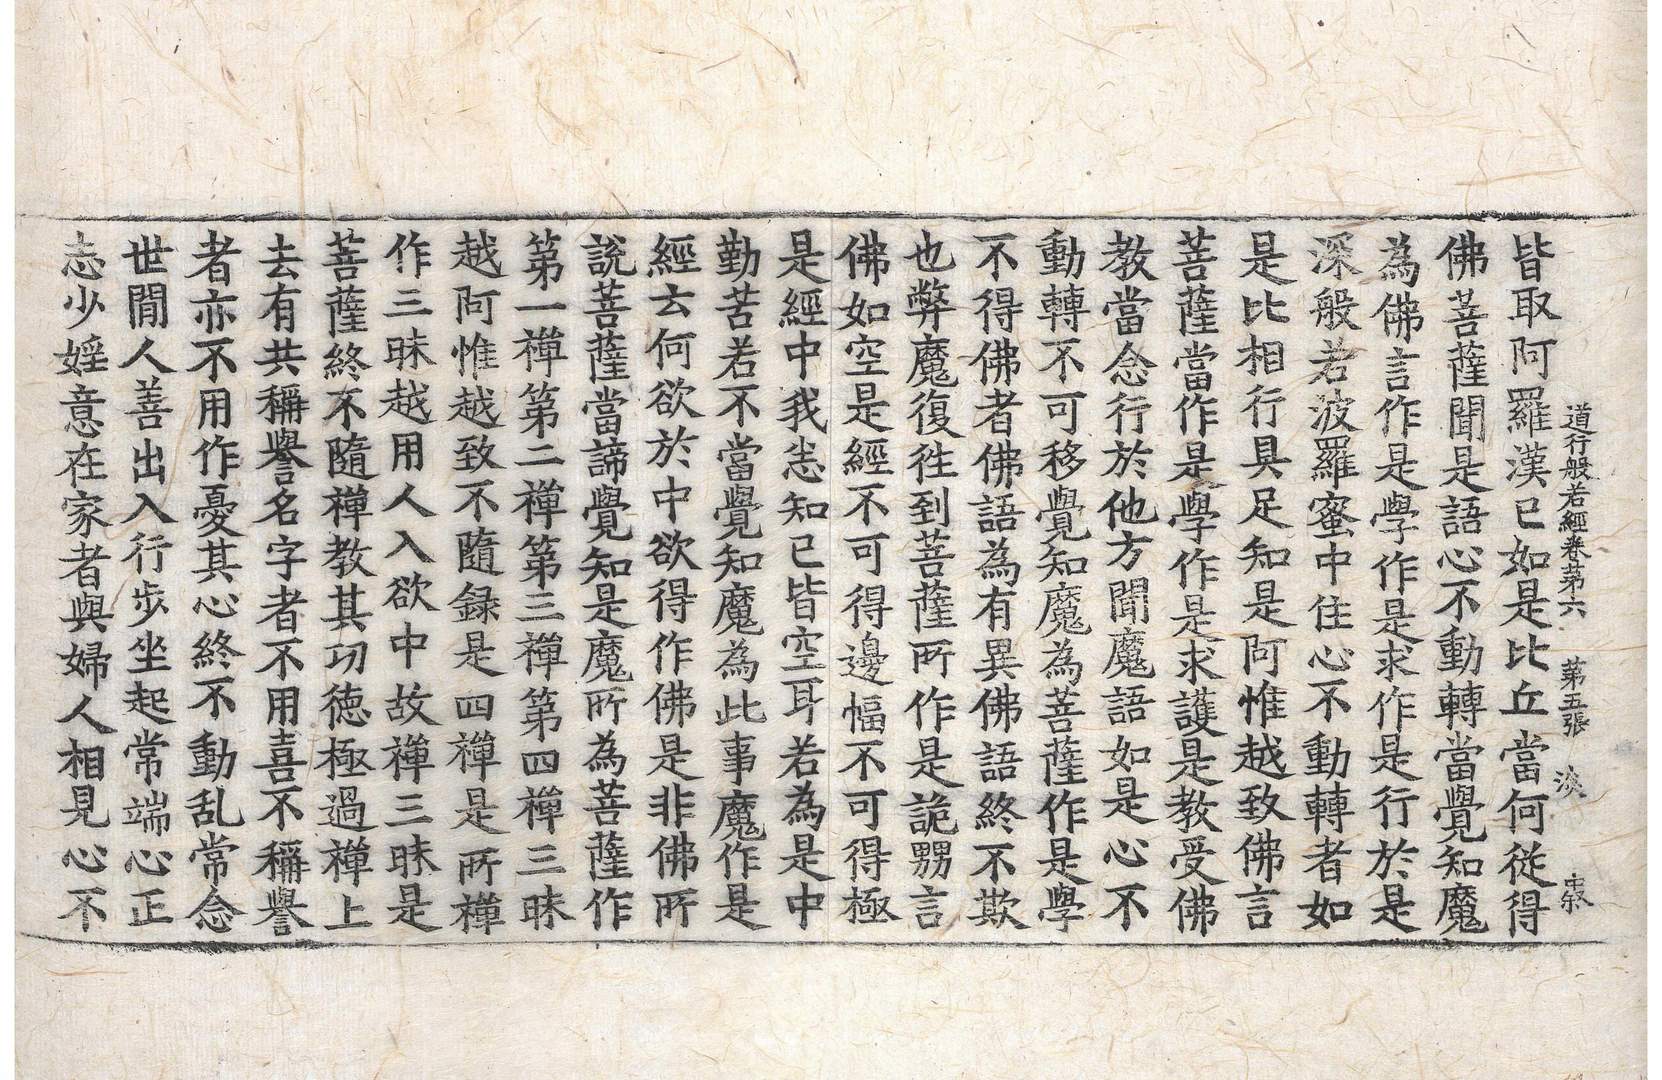 道行般若經卷第六 第五張 淡
皆取阿羅漢已如是比丘當何從得
佛菩薩聞是語心不動轉當覺知魔
為佛言作是學作是求作是行於是
深般若波羅蜜中住心不動轉者如
是比相行具足知是阿惟越致佛言
菩薩當作是學作是求護是教受佛
教當念行於他方聞魔語如是心不
動轉不可移覺知魔為菩薩作是學
不得佛者佛語為有異佛語終不欺
也弊魔復徃到菩薩所作是詭嬲言
佛如空是經不可得邊幅不可得極
是經中我悉知已皆空耳若為是中
勤苦若不當覺知魔為此事魔作是
經云何欲於中欲得作佛是非佛所
說菩薩當諦覺知是魔所為菩薩作
第一禪第二禪第三禪第四禪三昧
越阿惟越致不隨錄是四禪是所禪
作三昧越用人入欲中故禪三昧是
菩薩終不隨禪教其功德極過禪上
去有共稱譽名字者不用喜不稱譽
者亦不用作憂其心終不動乱常念
世間人善出入行步坐起常端心正
志少婬意在家者與婦人相見心不